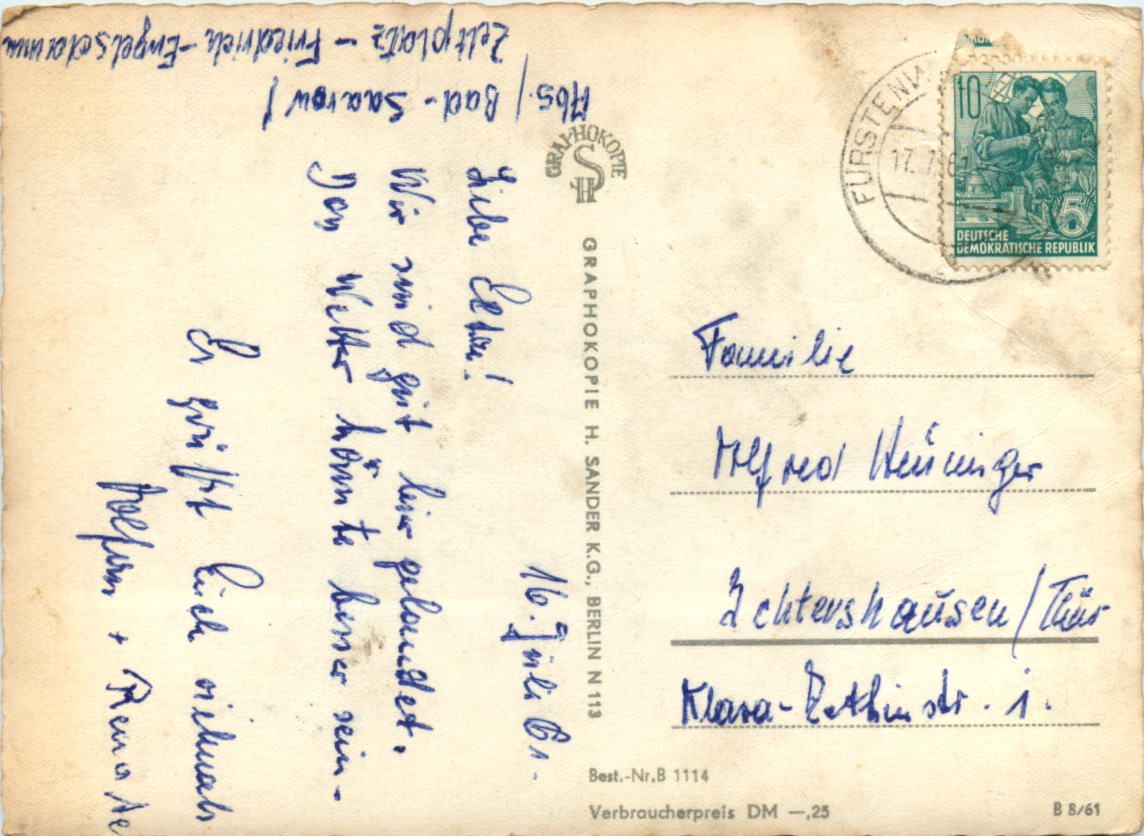 Abs./Bad-Saarow/
Zeltplatz-Friedrich-Engelsdamm
16. Juli 61.
Liebe Eltern!
Wir sind gut hier gelandet.
Das Wetter könnte besser sein-
Es grüßt Euch vielmals
Wolfram + Renate
GRAPHOKOPIE
SH
GRAPHOKOPIE H. SANDER K.G., BERLIN N 113
FÜRSTENW
17. 7. 61
10
5
DEUTSCHE
DEMOKRATISCHE REPUBLIK
Familie
Alfred Henninger
Ichtershausen/Thür
Klara-Zetkinstr. 1.
Best.-Nr.B 1114
Verbraucherpreis DM —,25
B 8/61